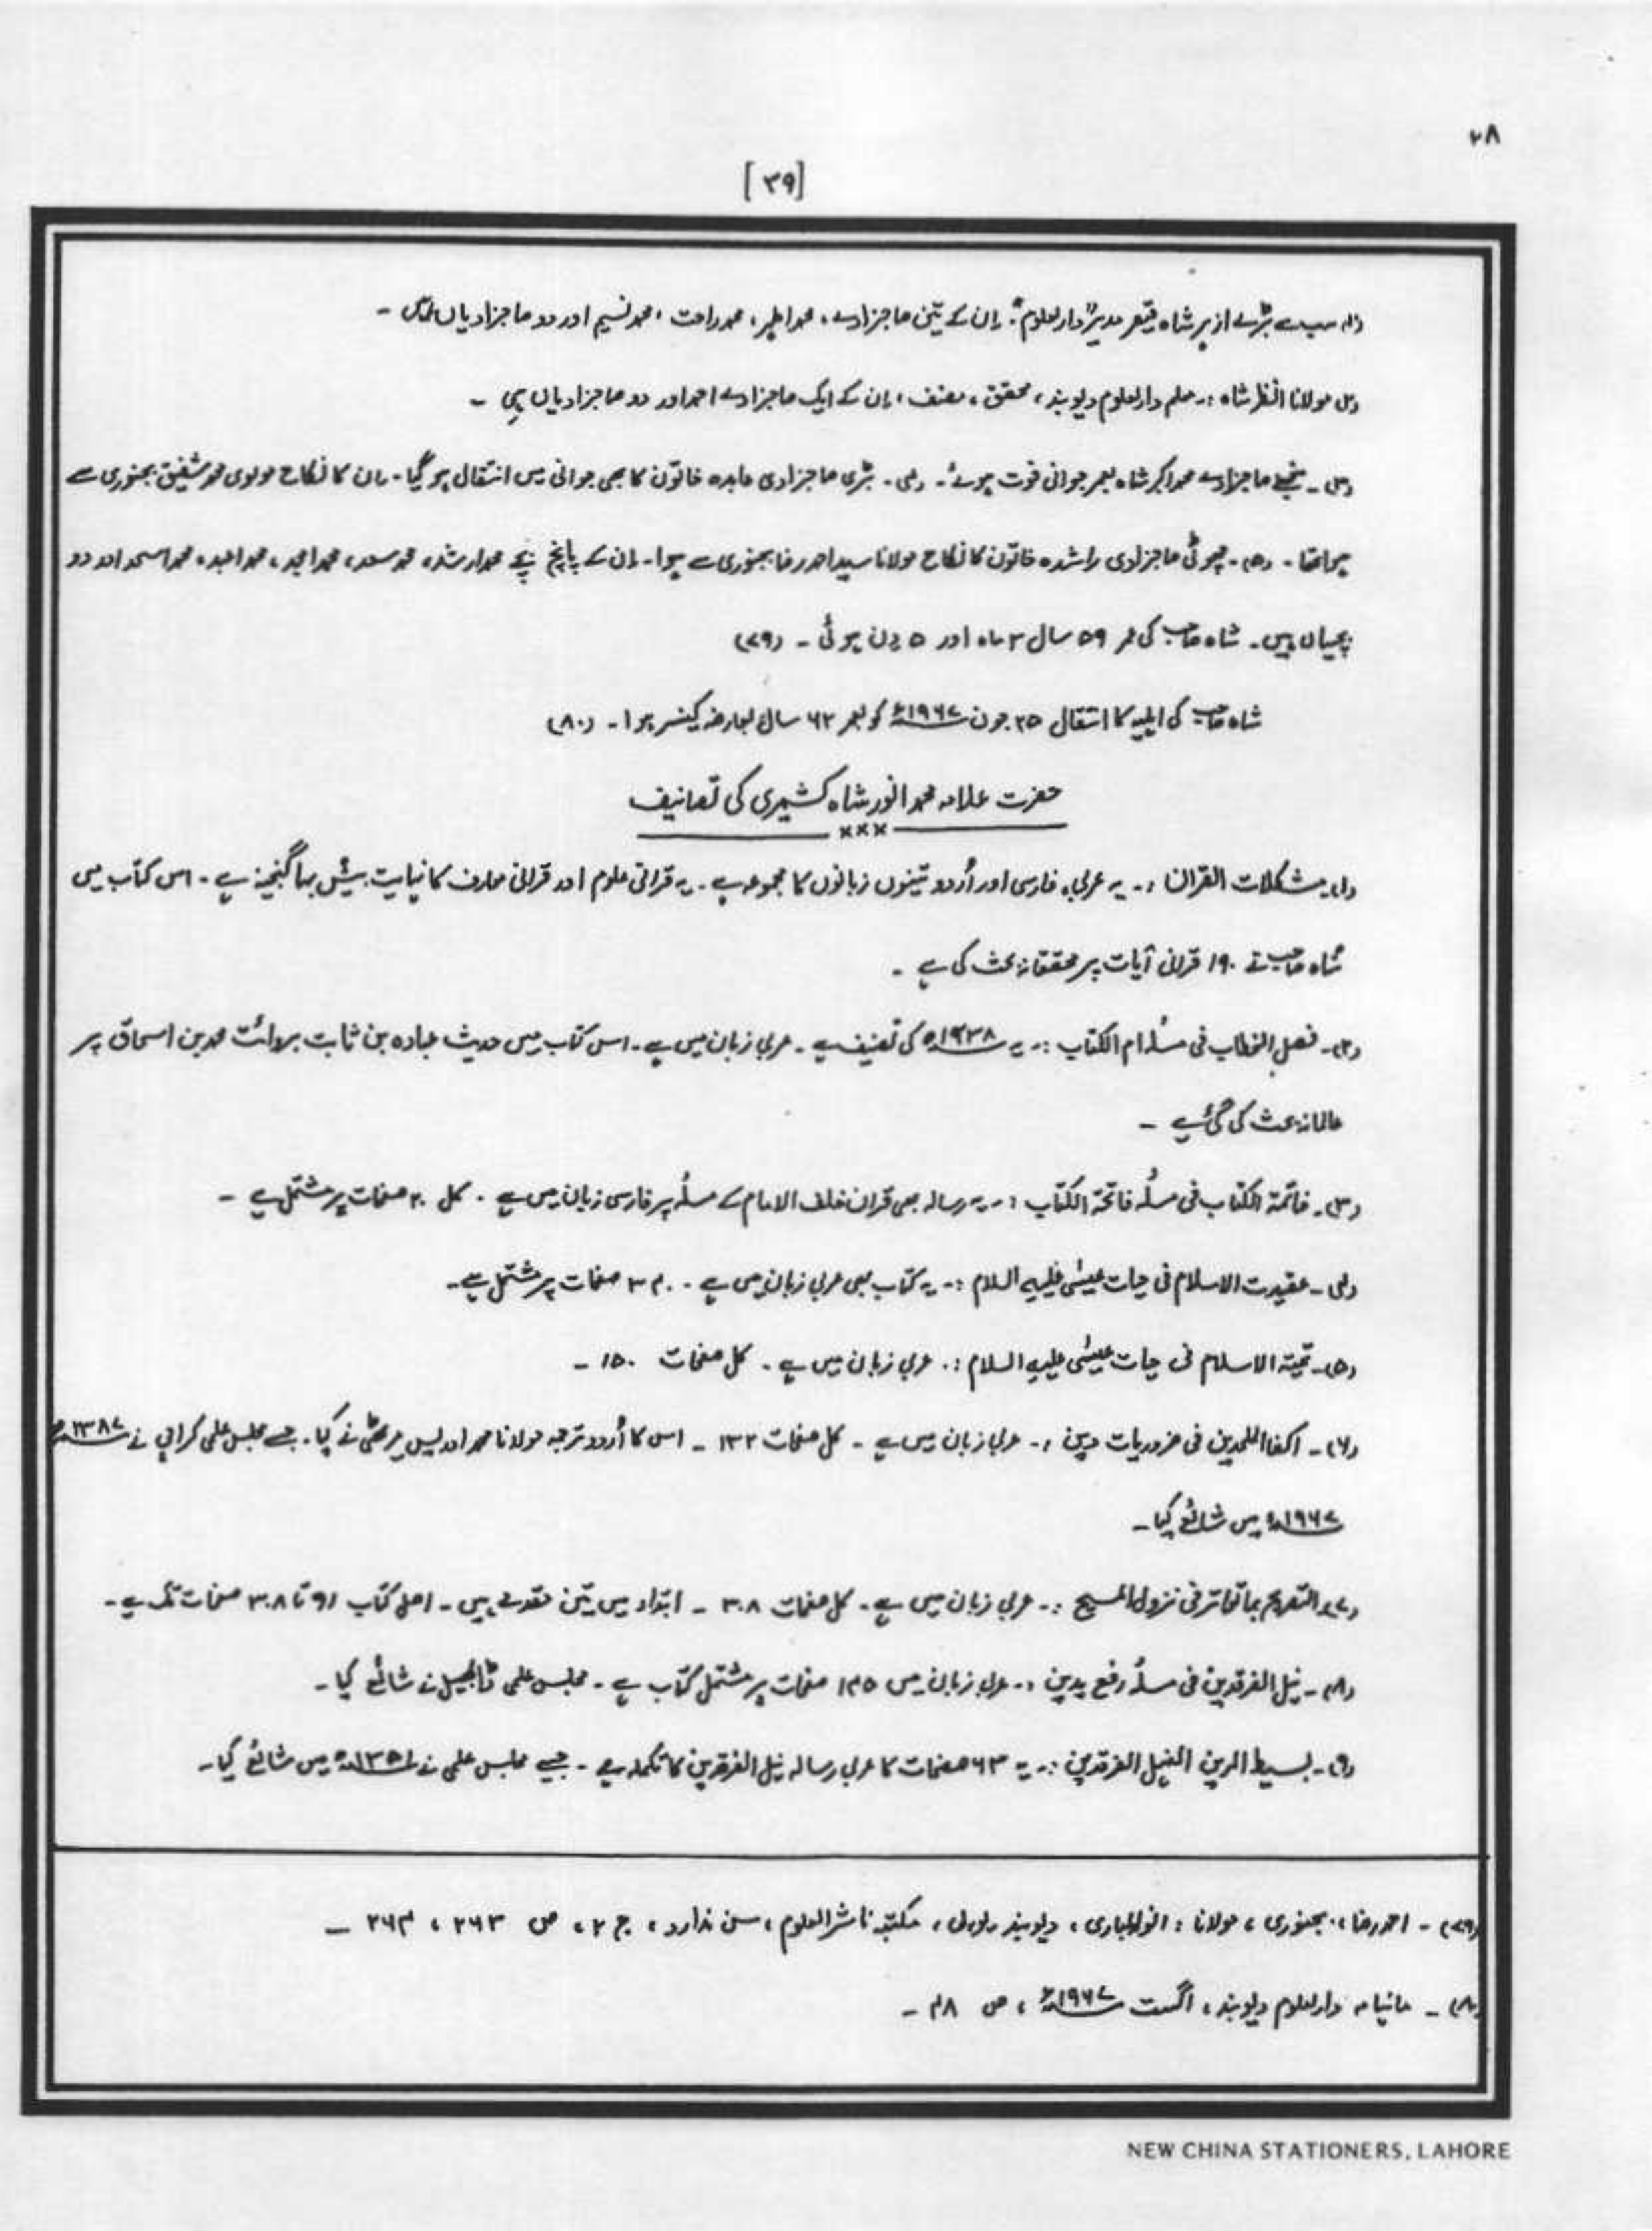 ۲۸
[۳۹]
(۱)۔ سب سے بڑے ازہر شاہ قیصر مدیر "دارالعلوم"۔ ان کے تین صاجزادے، محمد اطہر، محمد راحت، محمد نسیم اور دو صاجزادیاں ہیں۔
(۲) مولانا انظر شاہ :۔ معلم دارالعلوم دیوبند، محقق، مصنف، ان کے ایک صاجزادے احمد اور دو صاجزادیاں ہیں ۔
(۳)۔ منجھلے صاجزادے محمد اکبر شاہ بعمر جوانی فوت ہوئے۔ (۴)۔ بڑی صاجزادی عابدہ خاتون کا بھی جوانی میں انتقال ہو گیا۔ ان کا نکاح مولوی محمد شفیق بجنوری سے
ہوا تھا۔ (۵)۔ چھوٹی صاجزادی راشدہ خاتون کا نکاح مولانا سید احمد رضا بجنوری سے ہوا۔ ان کے پانچ بچے محمد ارشد، محمد سعد، محمد امجد، محمد اسعد اور دو
بچیاں ہیں۔ شاہ صاحب کی عمر ۵۹ سال ۳ ماہ اور ۵ دن ہوئی ۔ (۷۹)
شاہ صاحب کی اہلیہ کا انتقال ۲۵ جون ۱۹۶۷ء کو بعمر ۶۲ سال بعارضہ کینسر ہوا ۔ (۸۰)
حضرت علامہ محمد انور شاہ کشمیری کی تصانیف
×××
(۱)۔ مشکلات القرآن :۔ یہ عربی، فارسی اور اُردو تینوں زبانوں کا مجموعہ ہے۔ یہ قرآنی علوم اور قرآنی معارف کا نہایت بیش بہا گنجینہ ہے۔ اس کتاب میں
شاہ صاحب نے ۱۹۰ قرآنی آیات پر محققانہ بحث کی ہے ۔
(۲)۔ فصل الخطاب فی مسئلہ ام الکتاب :۔ یہ ۱۳۳۸ھ کی تصنیف ہے ۔ عربی زبان میں ہے۔ اس کتاب میں حدیث عبادہ بن ثابت بروائت محمد بن اسحاق پر
عالمانہ بحث کی گئی ہے ۔
(۳)۔ خاتمۃ الکتاب فی مسئلہ فاتحۃ الکتاب :۔ یہ رسالہ بھی قرآن خلف الامام کے مسئلہ پر فارسی زبان میں ہے ۔ کل ۳۰ صفحات پر مشتمل ہے ۔
(۴)۔ عقیدت الاسلام فی حیات عیسیٰ علیہ السلام :۔ یہ کتاب بھی عربی زبان میں ہے ۔ صفحات پر مشتمل ہے۔
(۵)۔ تحیۃ الاسلام فی حیات عیسیٰ علیہ السلام :۔ عربی زبان میں ہے ۔ کل صفحات ۱۵۰ ۔
(۶)۔ اکفاالملحدین فی ضروریات دین :۔ عربی زبان میں ہے ۔ کل صفحات ۱۳۲ ۔ اس کا اُردو ترجمہ مولانا محمد ادریس میرٹھی نے کیا۔ جسے مجلس علمی کراچی نے ۱۳۸۷ھ
۱۹۶۷ء میں شائع کیا۔
(۷)۔ التصریح بماتواتر فی نزول المسیح :۔ عربی زبان میں ہے۔ کل صفحات ۳۰۸ ۔ ابتداء میں تین مقدمے ہیں ۔ اصل کتاب ۹۱ تا ۳۰۸ صفحات تک ہے۔
(۸)۔ نیل الفرقدین فی مسئلہ رفع یدین :۔ عربی زبان میں ۱۴۵ صفحات پر مشتمل کتاب ہے ۔ مجلس علمی ڈابھیل نے شائع کیا ۔
(۹)۔ بسیط الدین النیل الفرقدین :۔ یہ ۶۳ صفحات کا عربی رسالہ نیل الفرقدین کا تکملہ ہے ۔ جسے مجلس علمی نے ۱۳۵۱ھ میں شائع کیا۔
(۷۹)۔ احمد رضا، بجنوری، مولانا : انوار الباری، دیوبند (یوپی)، مکتبہ ناشر العلوم، سن ندارد، ج ۲، ص ۲۶۳، ۲۶۴ ۔
(۸۰) ۔ ماہنامہ دارالعلوم دیوبند، اگست ۱۹۶۷ء، ص ۴۸ ۔
NEW CHINA STATIONERS, LAHORE